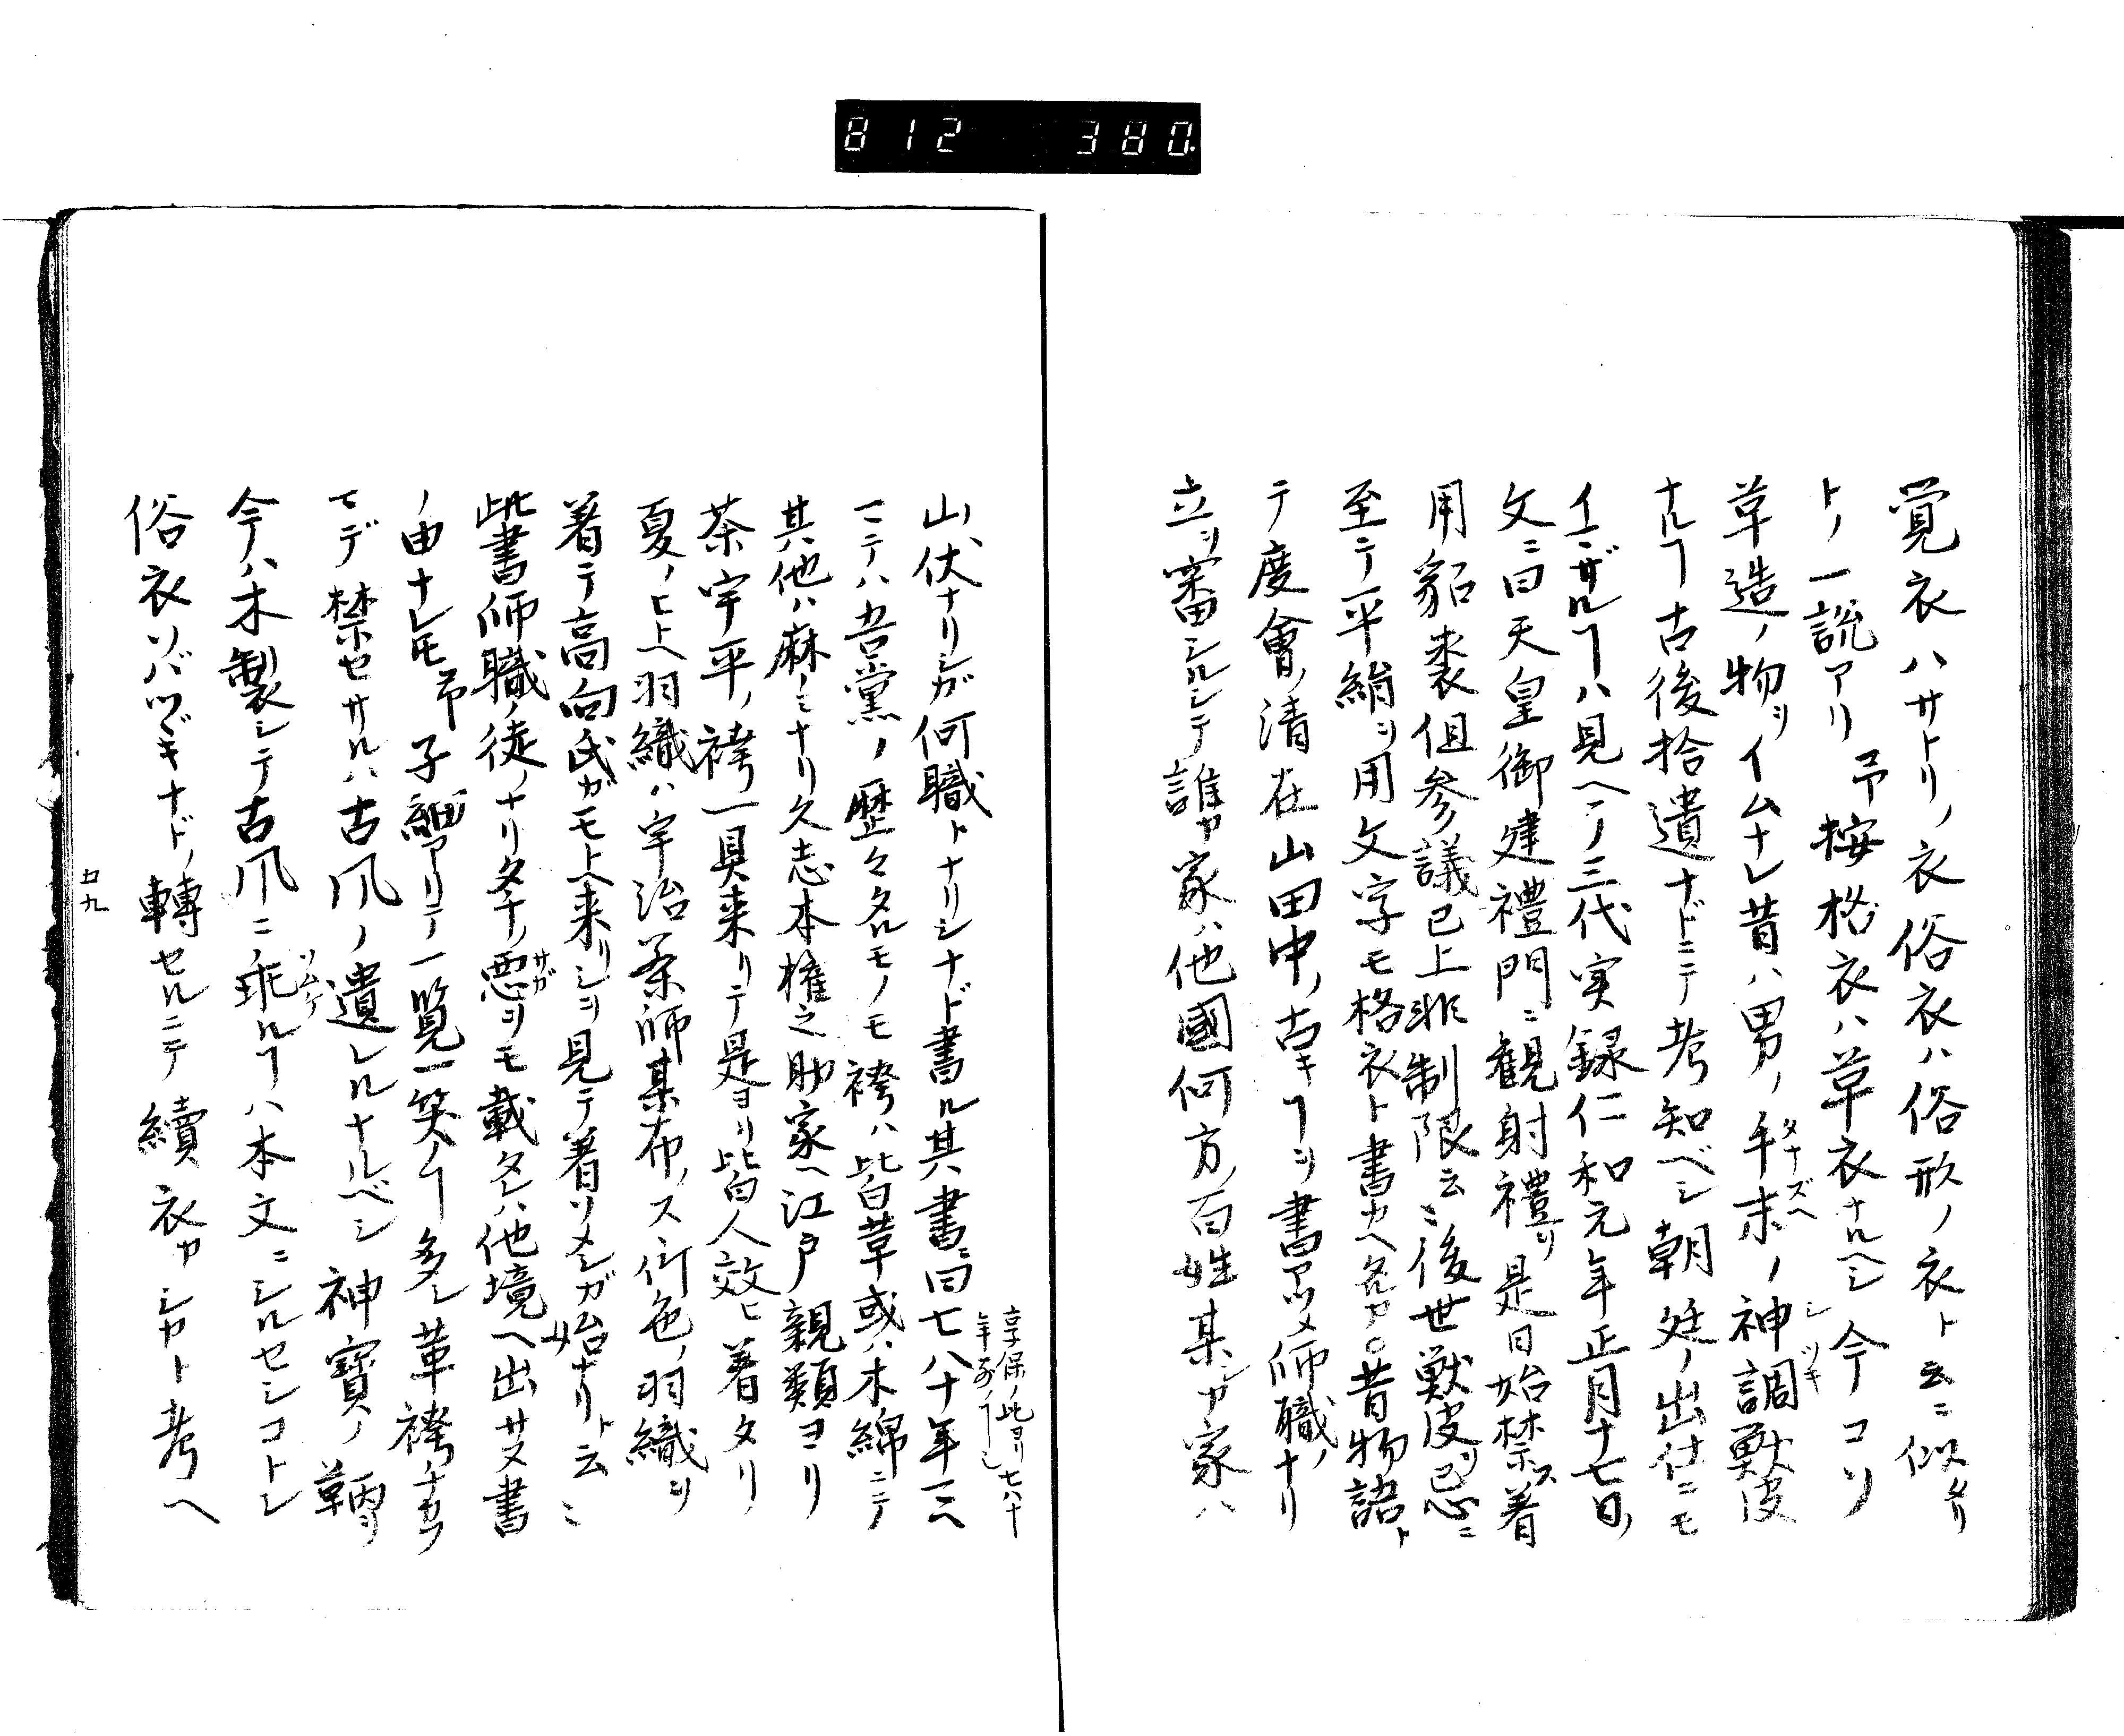 812 380.
覚衣ハサトリノ衣俗衣ハ俗形ノ衣ト云ニ似タリ
トノ一説アリ 予按格衣ハ草衣ナルヘシ今コソ
草造ノ物ヲイムナレ昔ハ男ノ手末ノ神調獣皮
タナズヘ
ミツキ
ナルヿ古後拾遺ナドニテ考知ベシ朝廷ノ出仕ニモ
イマザルヿハ見ヘテ三代実録仁和元年正月十七日ノ
文ニ曰天皇御建禮門ニ観射禮ヲ是日始禁ス着
用貂裘但参議已上非制限云ミ後世獣皮ヲ忌ニ
至テ平絹ヲ用文字モ格衣ト書カヘタルカ○昔物語ト
テ度會ノ清在山田中ノ古キヿヲ書アツメ師職ノナリ
立ヲ審シルシテ誰カ家ハ他國何方ノ百姓某シカ家ハ
山伏ナリシガ何職トナリシナド書ル其書ニ曰七八十年マヘ
享保ノ比ヨリ七八十
年前ノヿ也
マテハ吾黨ノ歴々タルモノモ袴ハ皆草或ハ木綿ニテ
其他ハ麻ノミナリ久志本権之助家ヘ江戸親類ヨリ
茶宇平ノ袴一具来リテ是ヨリ皆人效ヒ着タリ
夏ノヒトヘ羽織ハ宇治茶師某布ノス竹色ノ羽織ヲ
着テ高向氏ガモトヘ来リシヲ見テ着ソメシガ始ナリト云ミ
此書師職ノ徒ノナリタチノ悪ヲモ載タレハ他境ヘ出サヌ書
サガ
ノ由ナレトモ予子細アリテ一覧一笑ノヿ多シ革袴ナカラ
モデ禁セサルハ古風ノ遺レルナルベシ神寶ノ鞆ヲ
今ハ木製シテ古風ニ乖ルヿハ本文ニシルセシコトシ
ソムケ
俗衣ソバツヅキナドノ轉セルニテ續衣カシカト考ヘ
廿九